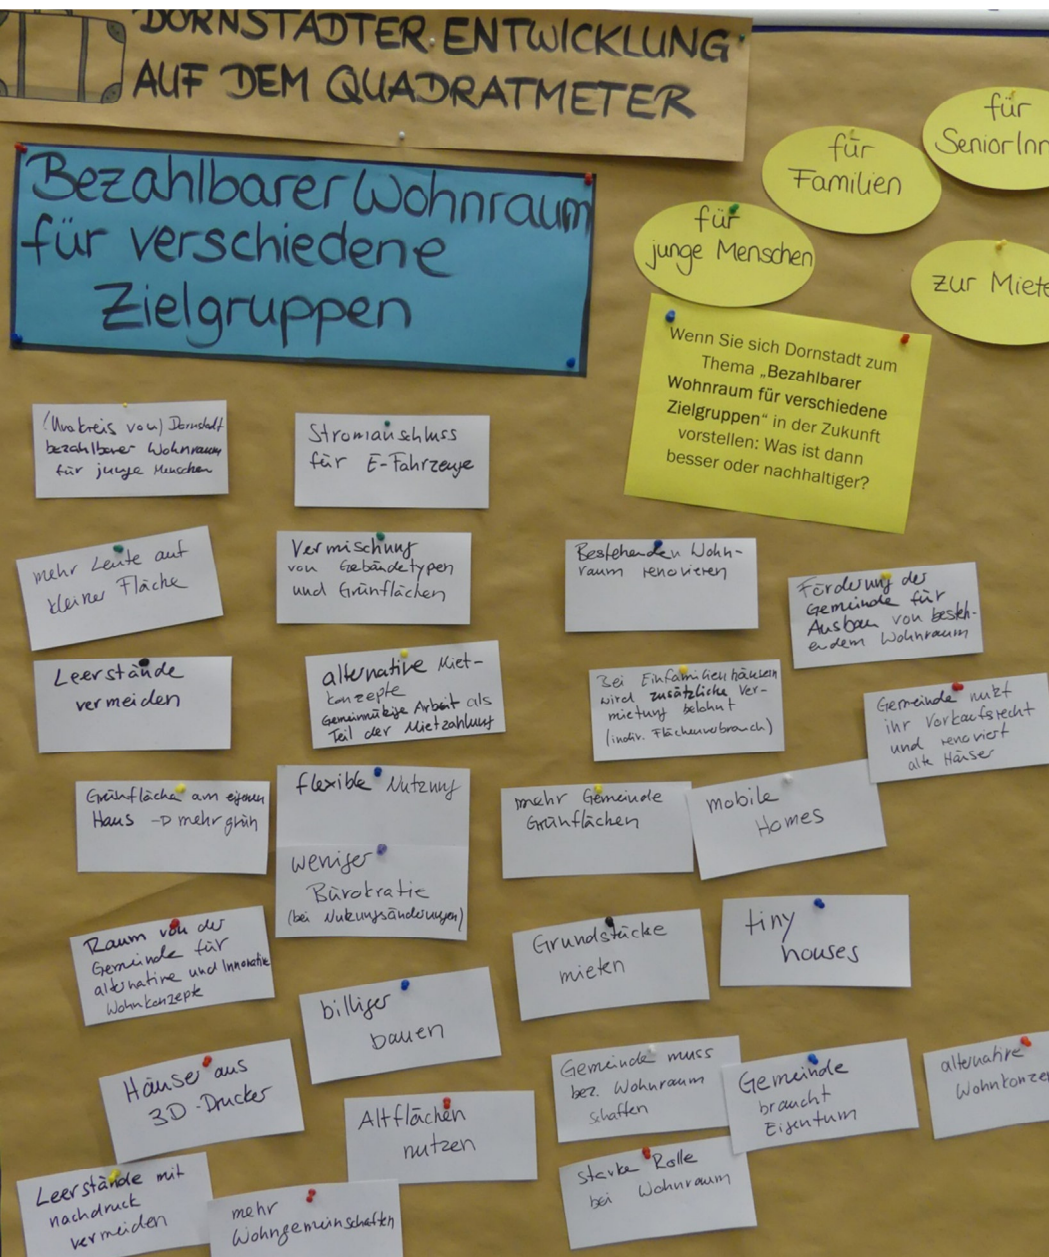 DORNSTADTER ENTWICKLUNG
AUF DEM QUADRATMETER
Bezahlbarer Wohnraum
für verschiedene
Zielgruppen
für
SeniorInn
für
Familien
für
junge Menschen
zur Miete
Wenn Sie sich Dornstadt zum
Thema „Bezahlbarer
Wohnraum für verschiedene
Zielgruppen“ in der Zukunft
vorstellen: Was ist dann
besser oder nachhaltiger?
(Umkreis von) Dornstadt
bezahlbarer Wohnraum
für junge Menschen
Stromanschluss
für E-Fahrzeuge
mehr Leute auf
kleiner Fläche
Vermischung
von Gebäudetypen
und Grünflächen
Bestehenden Wohn-
raum renovieren
Förderung der
Gemeinde für
Ausbau von besteh-
endem Wohnraum
Leerstände
vermeiden
alternative Miet-
konzepte
Gemeinnützige Arbeit als
Teil der Mietzahlung
Bei Einfamilienhäusern
wird zusätzliche Ver-
mietung belohnt
(indiv. Flächenverbrauch)
Gemeinde nutzt
ihr Vorkaufsrecht
und renoviert
alte Häuser
Grünfläche am eigenen
Haus → mehr grün
flexible Nutzung
weniger
Bürokratie
(bei Nutzungsänderungen)
mehr Gemeinde
Grünflächen
mobile
Homes
Raum von der
Gemeinde für
alternative und Innovative
Wohnkonzepte
billiger
bauen
Grundstücke
mieten
tiny
houses
Häuser aus
3D-Drucker
Altflächen
nutzen
Gemeinde muss
bez. Wohnraum
schaffen
Gemeinde
braucht
Eigentum
alternative
Wohnkonzep
Leerstände mit
nachdruck
vermeiden
mehr
Wohngemeinschaften
starke Rolle
bei Wohnraum